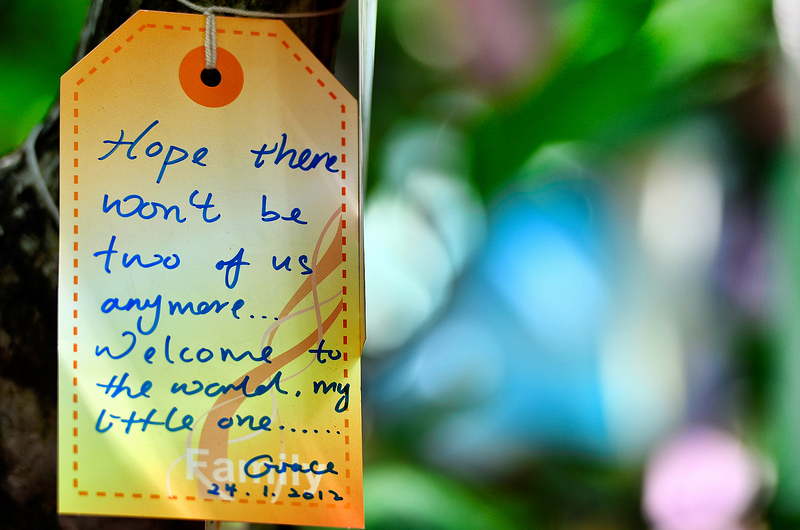 Hope there
won't be
two of us
anymore...
Welcome to
the world, my
little one......
Grace
Family
24.1.2012